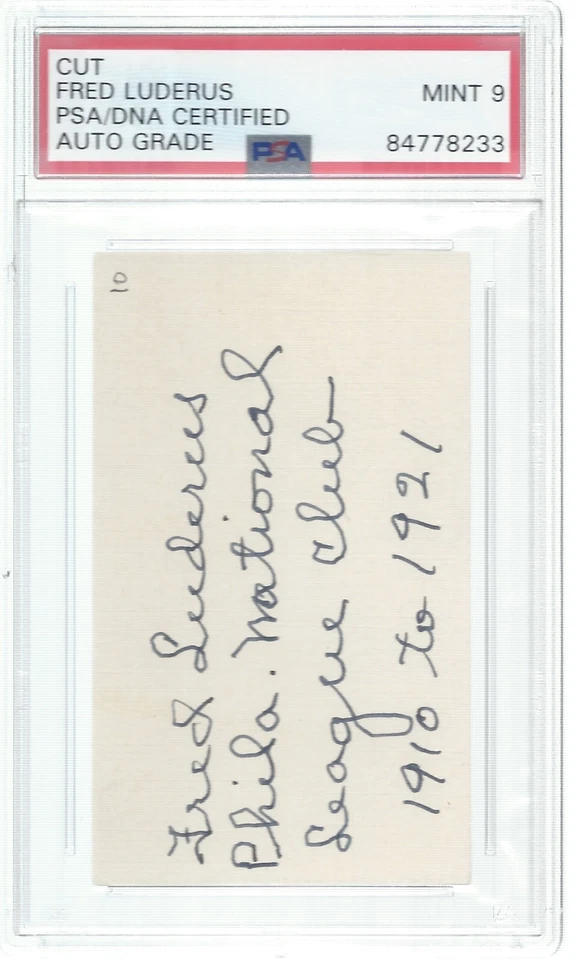 CUT
FRED LUDERUS
PSA/DNA CERTIFIED
AUTO GRADE
MINT 9
84778233
PSA
10
Fred Luderus
Phila. National
League Club
1910 to 1921